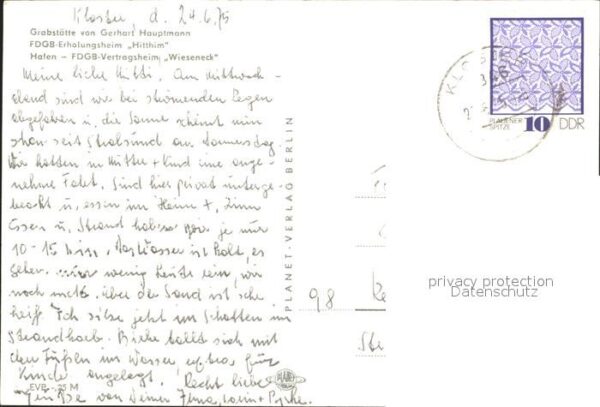 Kloster, d. 24.6.75
Grabstätte von Gerhart Hauptmann
FDGB-Erholungsheim „Hitthim"
Hafen – FDGB-Vertragsheim „Wieseneck"
Meine liebe Mutti. Am Mittwoch-
abend sind wir bei strömenden Regen
abgefahren u. die Sonne scheint nun
schon seit Stralsund am Donnerstag.
Wir hatten in Mutter + Kind eine ange-
nehme Fahrt. Sind hier privat unterge-
bracht u. essen im Heim
Essen u. Strand haben wir je nur
10-15 Min. Das Wasser ist kalt, es
gehen nur wenig Leute rein, wir
noch nicht. Aber der Sand ist sehr
heiß. Ich sitze jetzt im Schatten im
Strandkorb. tollt sich mit
den Füßen im Wasser extra für
Kinder angelegt. Recht liebe
von Deiner
EVP - 25 M
PLANET-VERLAG BERLIN
98
PLAUENER
SPITZE
10 DDR
KLOSTER
privacy protection
Datenschutz